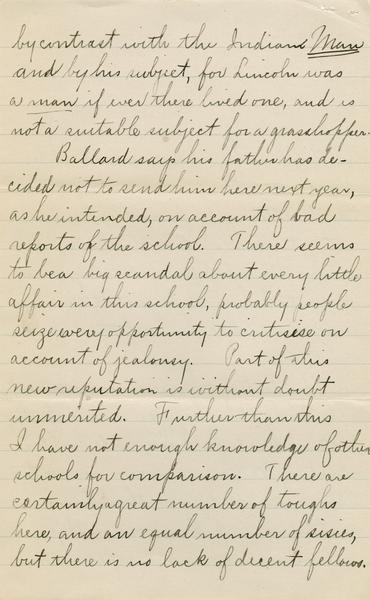 by contrast with the Indian Man
and by his subject, for Lincoln was
a man if ever there lived one, and is
not a suitable subject for a grasshopper.
Ballard says his father has de-
cided not to send him here next year,
as he intended, on account of bad
reports of the school. There seems
to be a big scandal about every little
affair in this school, probably people
seize every opportunity to criticise on
account of jealousy. Part of this
new reputation is without doubt
unmerited. Further than this
I have not enough knowledge of other
schools for comparison. There are
certainly a great number of toughs
here, and an equal number of sisies,
but there is no lack of decent fellows.